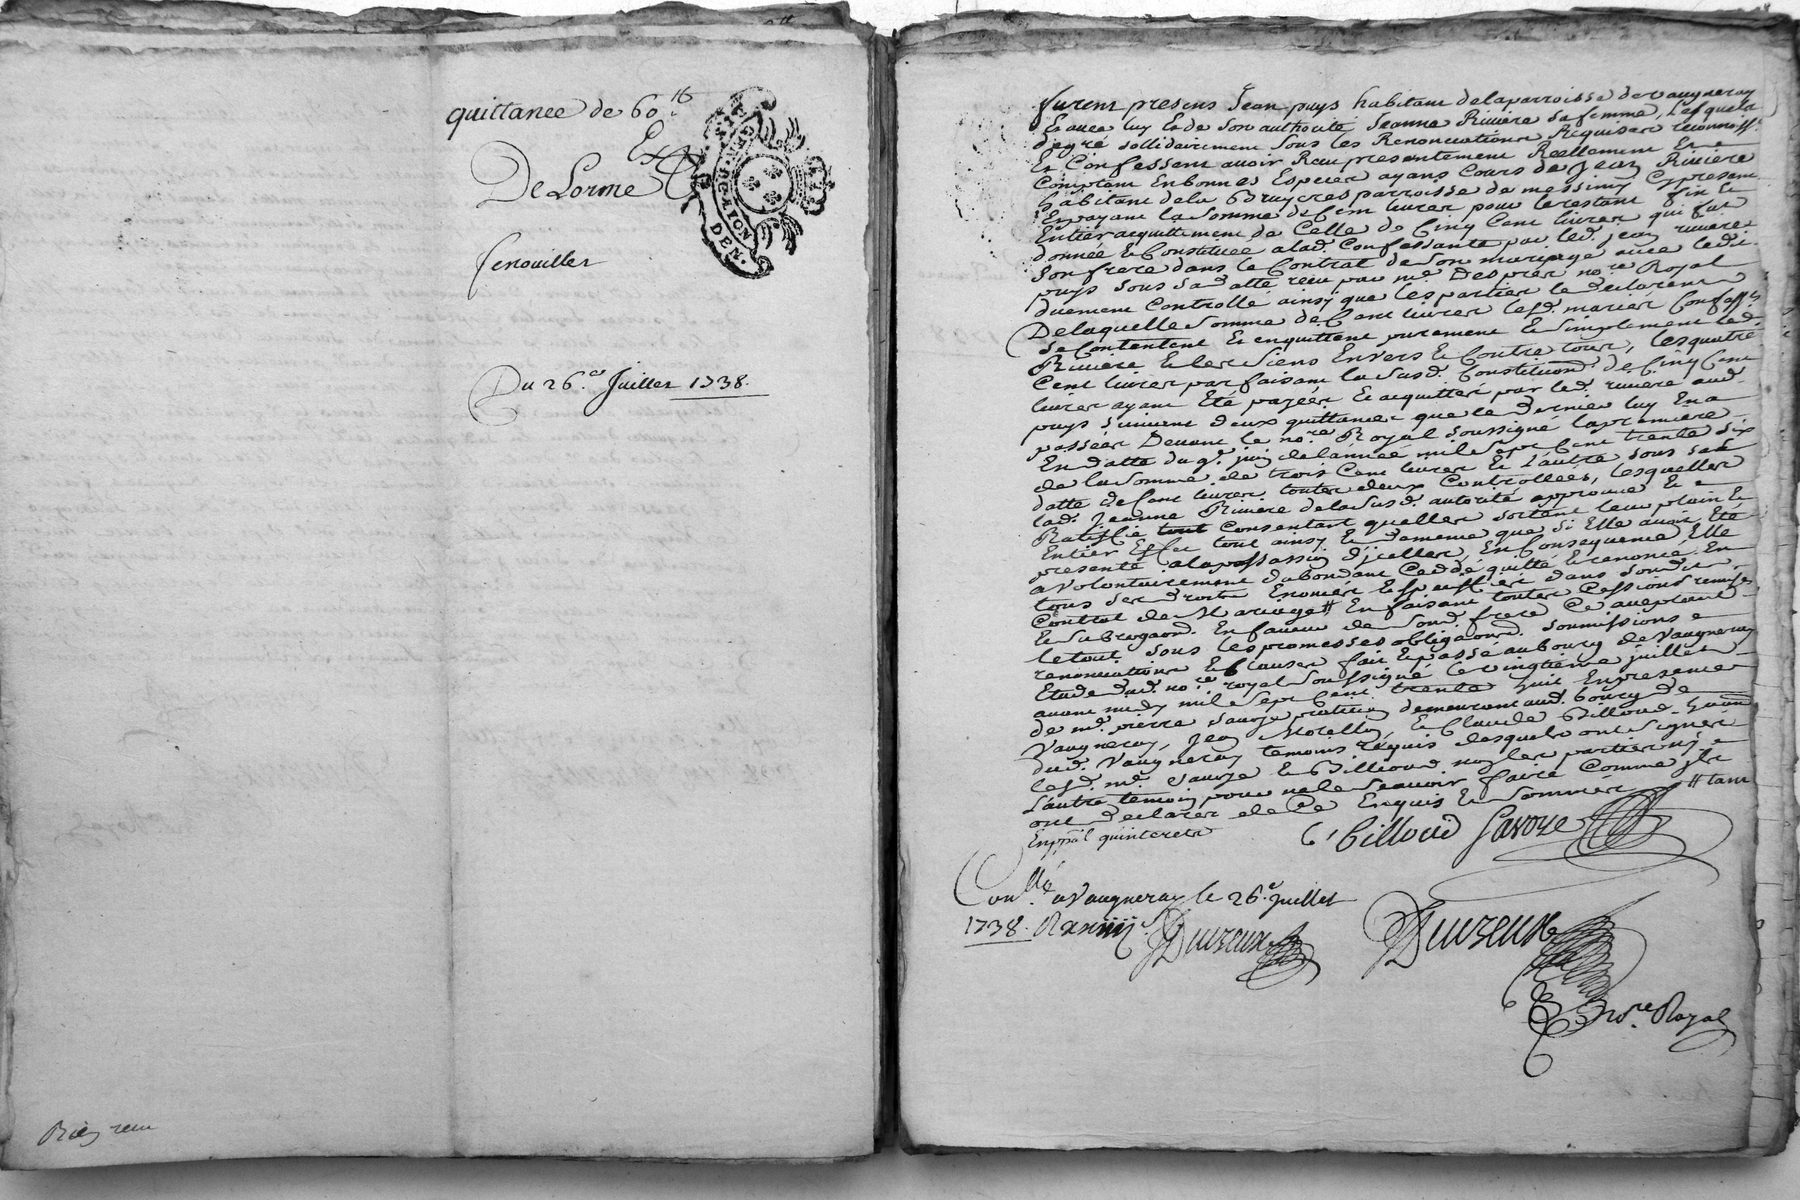 quittance de 60 ᵗᵗ
De Lorme
fenouillet
Du 26.e Juillet 1738.
Rien receu
GENERATION DE
furent presens Jean puys habitant de la parroisse de Vaugneray
Et avec luy Et de Son authorité Jeanne Riviere Sa femme, Lesquels
de gré sollidairement Sous les Renonciations Requises reconnoiss.t
Et Confessent avoir Receu presentement Reellement Et
Comptant En bonnes Especes ayans Cours de Jean Riviere
habitant de la Bruyeres parroisse de messimy Cy present
Et payant la Somme de Cent livres pour le restant fin Et
Entier acquittement de Celle de Cinq Cent livres qui fut
donnée Et Constituée a lad. Confessante par led. jean riviere
Son frere dans le Contrat de Son mariage avec ledit
puys Sous Sa datte receu par me. Desprez no.re Royal
duement Controllé ainsy que les parties le declarent
De laquelle Somme de Cent livres lesd. mariés Confess.ts
Se Contentent Et en quittent purement Et Simplement led.
Riviere Et les Siens Envers Et Contre tous, les quatre
Cent livres parfaisant la Susd. Constitution de Cinq Cent
livres ayant Eté payées Et acquittés par led. riviere aud.
puys Suivant deux quittances que ce dernier luy En a
passées Devant le no.re Royal soussigné la premiere
En datte du 9.e juin de l'année mil Sept Cent trente Six
de la Somme de trois Cent livres Et l'autre Sous Sa
datte de Cent livres toutes deux Controllées, lesquelles
lad. Jeanne Riviere de la Susd. autorité approuve Et
Ratiffie tout Consentant quelles Sortent leur plain Et
Entier Effet tout ainsy Et de meme que Si Elle avoit Eté
presente a la passation d'jcelles, En Consequence Elle
a volontairement d'abondant Ceddé quitté Et renoncé En
tous Ses droits Enoncés Et Specifiés dans Sondit
Contrat de Mariage ## En faisant toutes Cessions remises
Et Subrogaon.s En faveur de Sond. frere Ce aceptant
le tout Sous les promesses obligaons. Soumissions
renonciations Et Clauses fait Et passé au bourg de Vaugneray
Etude dud. no.re royal Soussigné le vingtieme juillet
avant midy mil Sept Cent trente huit En presence
de me. pierre Savoye praticien demeurant aud. bourg de
Vaugneray, Jean Morellon, Et Claude Billoud
dud. Vaugneray temoins requis desquels ont Signés
lesd. me. Savoye Et Billioud non les parties ny
l'autre temoin pour ne le Scavoir faire Comme jls
ont declarés de Ce Enquis Et Sommés ## tant
En ppal qu'interets
C. billoud Savoye
Con.llé a Vaugneray le 26.e juillet
1738. R
Duvzeux
Duvzeux
no.re Royal